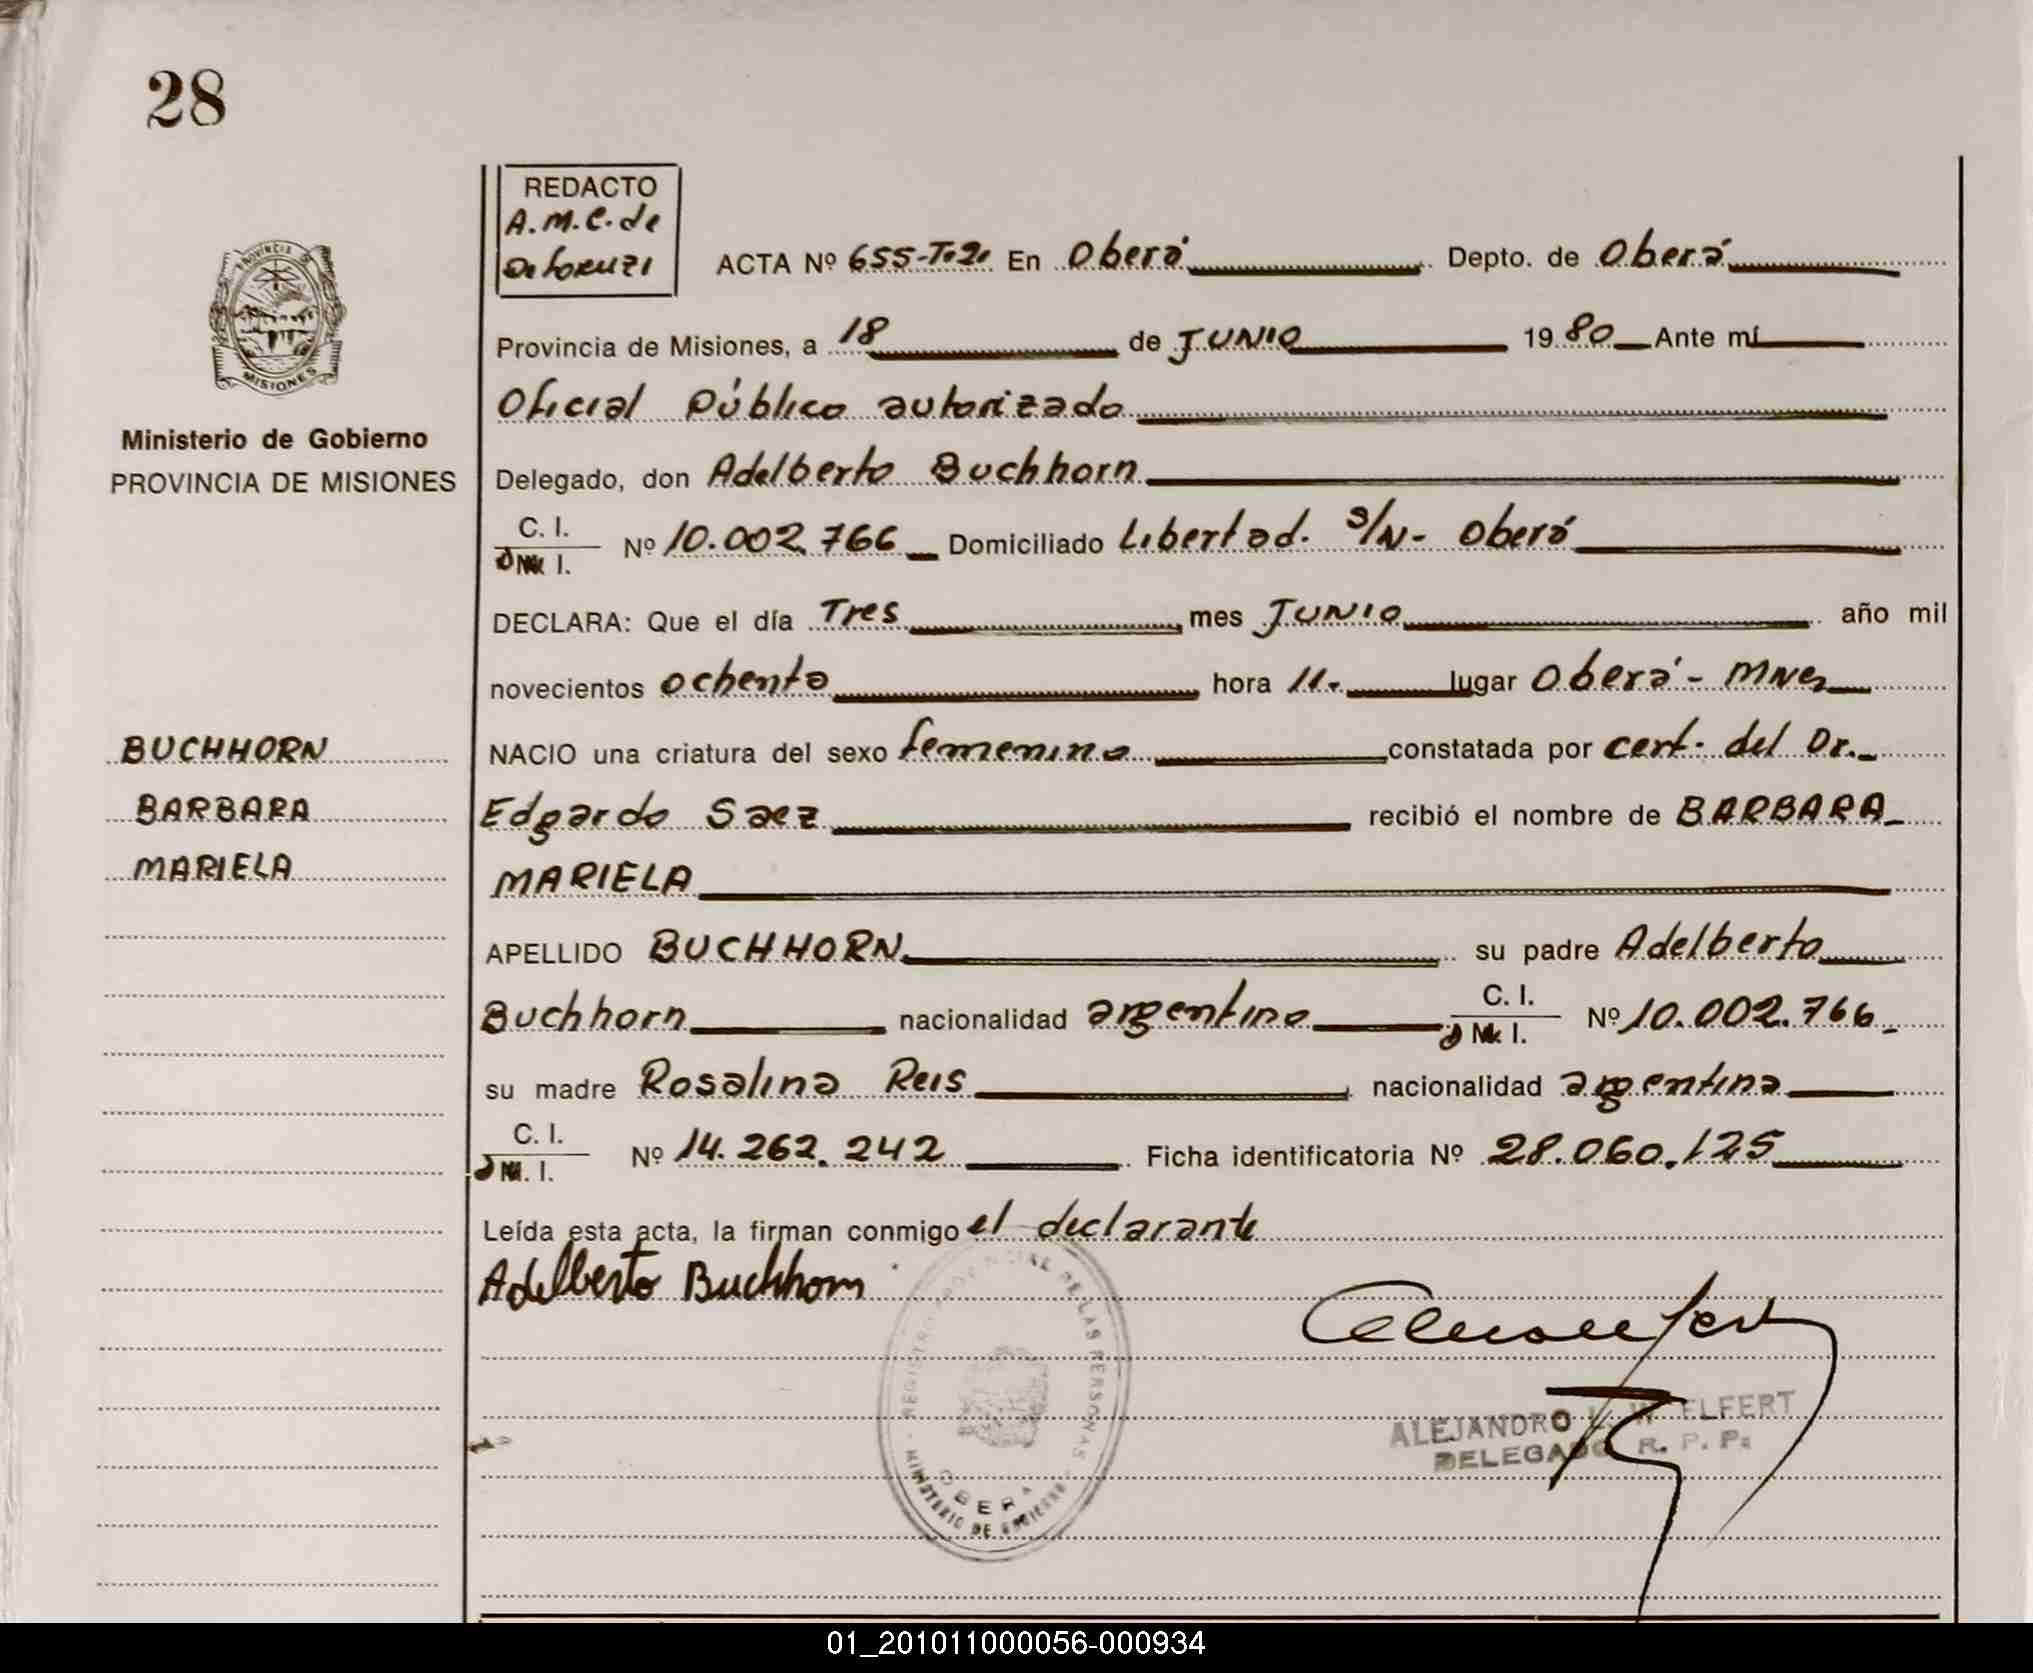 28
REDACTO
A.M.C. de
De Lorenzi
ACTA Nº 655-T.2. En Oberá Depto. de Oberá
Provincia de Misiones, a 18 de JUNIO 19 80 Ante mí
Oficial Público autorizado
Ministerio de Gobierno
PROVINCIA DE MISIONES
Delegado, don Adelberto Buchhorn
C. I.
ó M. I. Nº 10.002.766 Domiciliado Libertad. S/N- Oberá
DECLARA: Que el día Tres mes JUNIO año mil
novecientos ochenta hora 11. lugar Oberá - Mnes
BUCHHORN
BARBARA
MARIELA
NACIO una criatura del sexo femenino constatada por cert. del Dr.
Edgardo Saez recibió el nombre de BARBARA
MARIELA
APELLIDO BUCHHORN su padre Adelberto
Buchhorn nacionalidad argentino C. I. ó M. I. Nº 10.002.766
su madre Rosalina Reis nacionalidad argentina
C. I.
ó M. I. Nº 14.262.242 Ficha identificatoria Nº 28.060.125
Leída esta acta, la firman conmigo el declarante
Adelberto Buchhorn
REGISTRO PROVINCIAL DE LAS PERSONAS
OBERA
MINISTERIO DE GOBIERNO
ALEJANDRO L. W ELFERT
DELEGADO R. P. P.
PROVINCIA DE
MISIONES
01_201011000056-000934